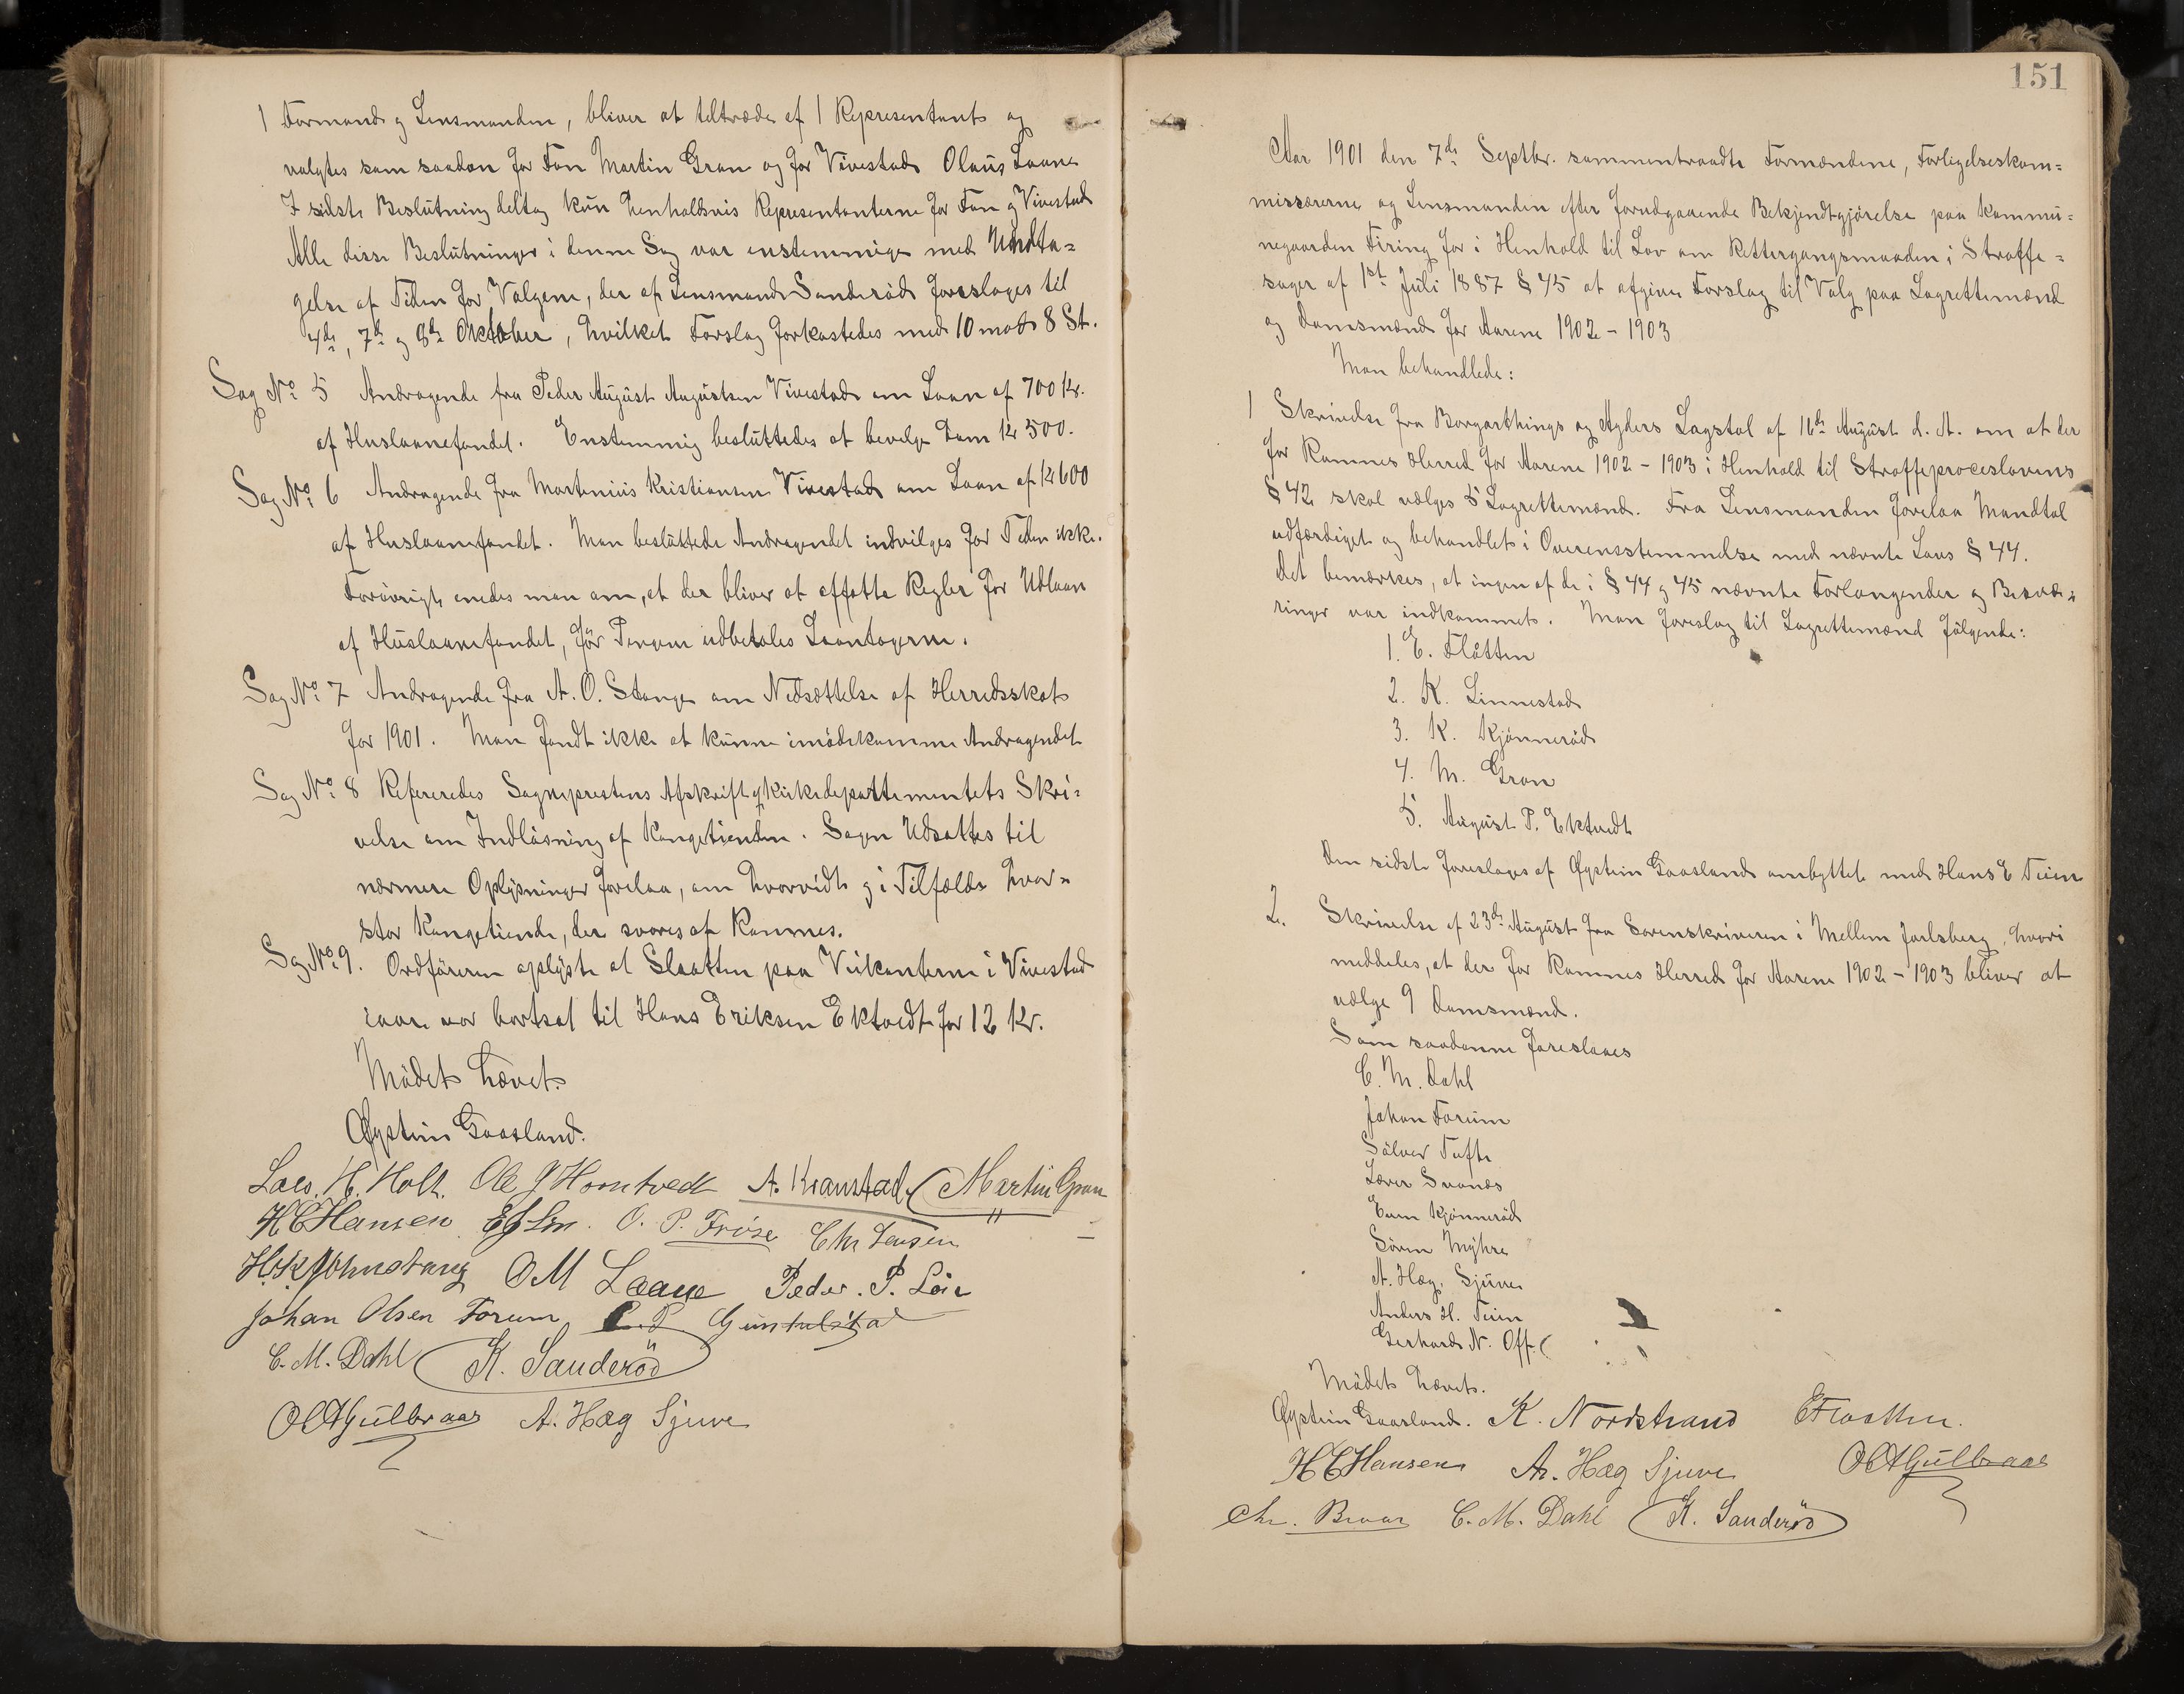 1 Formand og Lensmanden, bliver at tiltræde af 1 Representant og
valgtes som saadan for Fon Martin Gran og for Vivestad Olaus Laane
I sidste Beslutning deltog kun henholdsvis Representanterne for Fon og Vivestad
Alle disse Beslutninger i denne Sag var enstemmige med Undta=
gelse af Tiden for Valgene, der af Lensmand Sanderöd foresloges til
4de, 7de og 8de Oktober, hvilket Forslag forkastedes med 10 mod 8 St.
Sag No 5 Andragende fra Peder August Augustsen Vivestad om Laan af 700 Kr.
af Huslaanefondet. Enstemmig besluttedes at bevilge Dem Kr 500.
Sag No 6 Andragende fra Martinius Kristiansen Vivestad om Laan af Kr 600
af Huslaanefondet. Man besluttede Andragendet indvilges for Tiden ikke.
Forövrigt enedes man om, at der bliver at affatte Regler for Udlaan
af Huslaanefondet, för Pengene udbetales Laantagerne.
Sag No 7 Andragende fra A. O. Stange om Nedsættelse af Herredsskat
for 1901. Man fandt ikke at kunne imödekomme Andragendet
Sag No 8 Refereredes Sogneprestens Afskrift af Kirkedepartementets Skri=
velse om Indlösning af Kongetienden. Sagen Udsattes til
nærmere Oplysninger forelaa, om hvorvidt og i Tilfælde hvor=
stor Kongetiende, der svares af Ramnes.
Sag No 9. Ordföreren oplyste at Slaatten paa Veikanterne i Vivestad
iaar var bortsat til Hans Eriksen Ektvedt for 12 Kr.
Mödet hævet.
Øystein Gaasland.
Lars. H. Holt. Ole J Horntvedt A. Kraustad. Martin Gran
H C Hansen O. P. Fröse Chr Jensen
H. K. Johnstang O M Laane Peder. P. Löie
Johan Olsen Forum
C. M. Dahl K. Sanderöd
O A Gulbraar A. Hæg Sjuve
151
Aar 1901 den 7de Septbr. sammentraadte Formændene, Forligelseskom=
missærerne og Lensmanden efter forudgaaende Bekjendtgjörelse paa Kommu=
negaarden Firing for i Henhold til Lov om Rettergangsmaaden i Straffe=
sager af 1st Juli 1887 § 45 at afgive Forslag til Valg paa Lagrettemænd
og Domsmænd for Aarene 1902 - 1903
Man behandlede:
1 Skrivelse fra Borgarthings og Agders Lagstol af 16de August d. A. om at der
for Ramnes Herred for Aarene 1902 - 1903 i Henhold til Straffeproceslovens
§ 42 skal vælges 5 Lagrettemænd. Fra Lensmanden forelaa Mandtal
udfærdiget og behandlet i Overensstemmelse med nævnte Lovs § 44.
Det bemærkes, at ingen af de i § 44 og 45 nævnte Forlangender og Besvæ=
ringer var indkommet. Man foreslog til Lagrettemænd fölgende:
1. E. Flåtten
2. K. Linnestad
3. K. Kjönneröd
4. M. Gran
5. August P. Ektvedt
Den sidste foresloges af Øystein Gaasland ombyttet med Hans E Teien
2. Skrivelse af 23de August fra Sorenskriveren i Mellem Jarlsberg, hvori
meddeles, at der for Ramnes Herred for Aarene 1902 - 1903 bliver at
vælge 9 Domsmænd.
Som saadanne foreslaaes
C. M. Dahl
Johan Forum
Sölver Tufte
Lærer Svanæs
Even Kjönneröd
Sören Myhre
A. Hæg. Sjuve
Anders H. Teien
Gerhard N. Off
Mödet hævet.
Øystein Gaasland. K. Nordstrand E Flaatten.
H C Hansen A. Hæg Sjuve O A Gulbraar
Chr. Braar C. M. Dahl K. Sanderöd